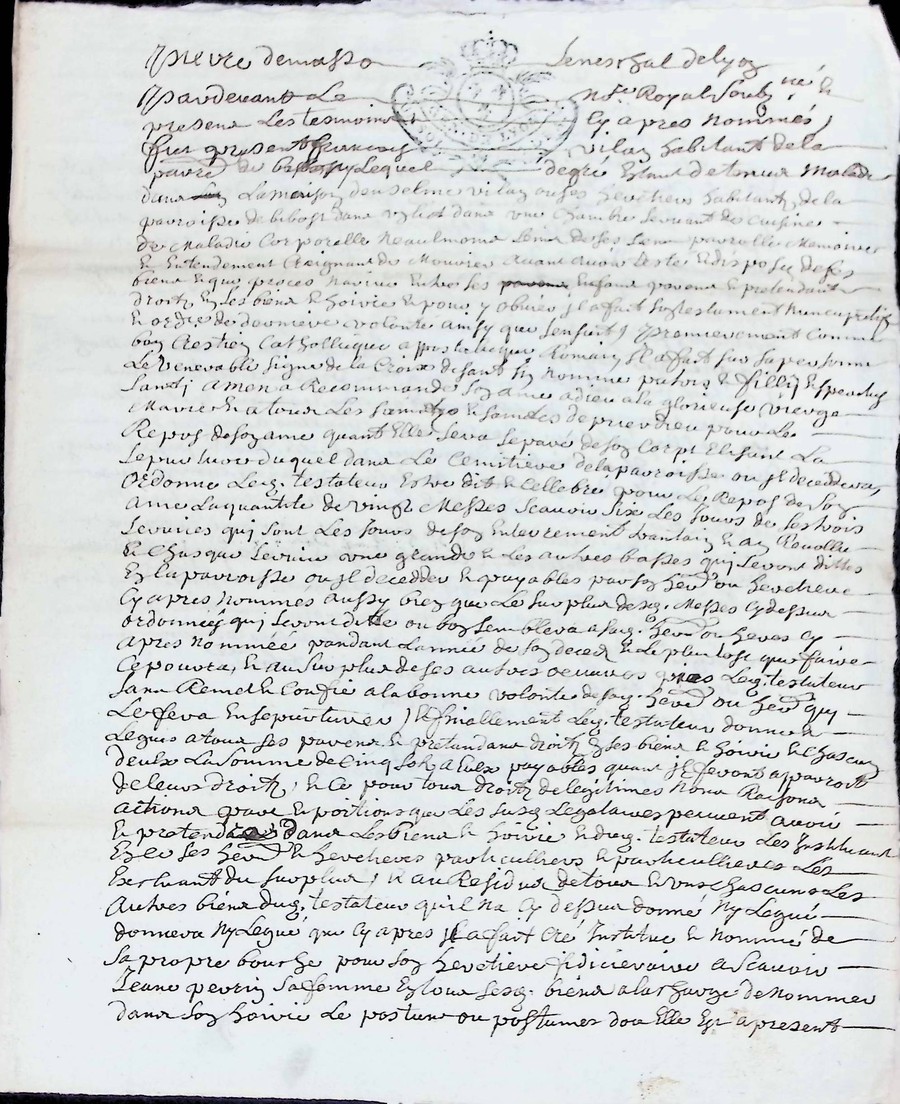 Pierre demasso Seneschal de lyon
Pardevant Le no.re Royal soubz.né &
presens Les tesmoins Cy apres nommés
fut present francois vilain habitant de la
parr.e de Lequel degré Estant detenu Malade
dans La maison danselme vilain ou ses heretiers habitant de la
parroisse de bibost dans un lict dans une Chambre servant de Cuisine
de Maladie Corporelle neaulmoins sein de ses sens parolle Memoire
& Entendement Craignant de Mourir avant avoir testé & disposé de ses
biens & que proces n'arrive entre ses enfans parens & pretendans
droitz en ses biens & hoirie & pour y obvier jl a fait son testament nuncupatif
& ordre de derniere volonté ainsy que s'ensuit, premierement Comme
bon Crestien Catholicque appostolicque Romain jl a fait sur sa personne
Le venerable signe de la Croix disant In nomine patris & fillij & speritus
santj amen a Recommandé son ame a dieu a la glorieuse vierge
Marie & a tous Les saincts & sainctes de prier dieu pour Le
Repos de son ame quant Elle sera separé de son Corps Elisant La
sepulture duquel dans Le Cemitiere de la parroisse ou jl deceddera,
ordonne Led. testateur Estre dit & Cellebré pour Le Repos de son
ame La quantité de vingt Messes scavoir six Les Jours de ses trois
services qui sont Les Jours de son Enterrement & au Revollu
& Chasque service une grande & Les autres basses qui seront dittes
En la parroisse ou jl decedder & payables par son her. ou heretiere
Cy apres nommés aussy bien que Le surplus desd. Messes Cy dessus
ordonnées qui seront ditte ou bon semblera a sad. her. ou heres Cy
apres nommée pandant L'année de son deces & Le plus tost que faire
Ce pourra, & au surplus de ses autres oeuvres pies Led. testateur
s'en Remet & Confie a la bonne volonté de son her. ou her. qui
Le fera Ensepulturer, & finallement Led. testateur donne &
Legue a tous ses parens & pretendans droitz En ses biens & hoirie & Chascun
deulx La somme de Cinq solz a Eulx payables quant jl feront apparoir
de leurs droitz, & Ce pour tous droitz de legitimes noms Raisons
actions part & portions que Les susd. Legataires peuvent avoir
& pretendre dans Les biens & hoirie dud. testateur Les Instituant
En Ce ses her. & heretieres particulliers & particullieres Les
Excluant du surplus, & au Residu de tous & uns Chascuns Les
Autres biens dud. testateur qu'il n'a Cy dessus donné ny Legué
donnera ny Legué que Cy apres jl a fait Cré Institué & nommé de
sa propre bouche pour son heretiere fidicieraire a scavoir
Jeane perrin sa femme En tous sesd. biens a la Charge de nommer
dans son hoirie Le postume ou postumes dou Elle Est a present